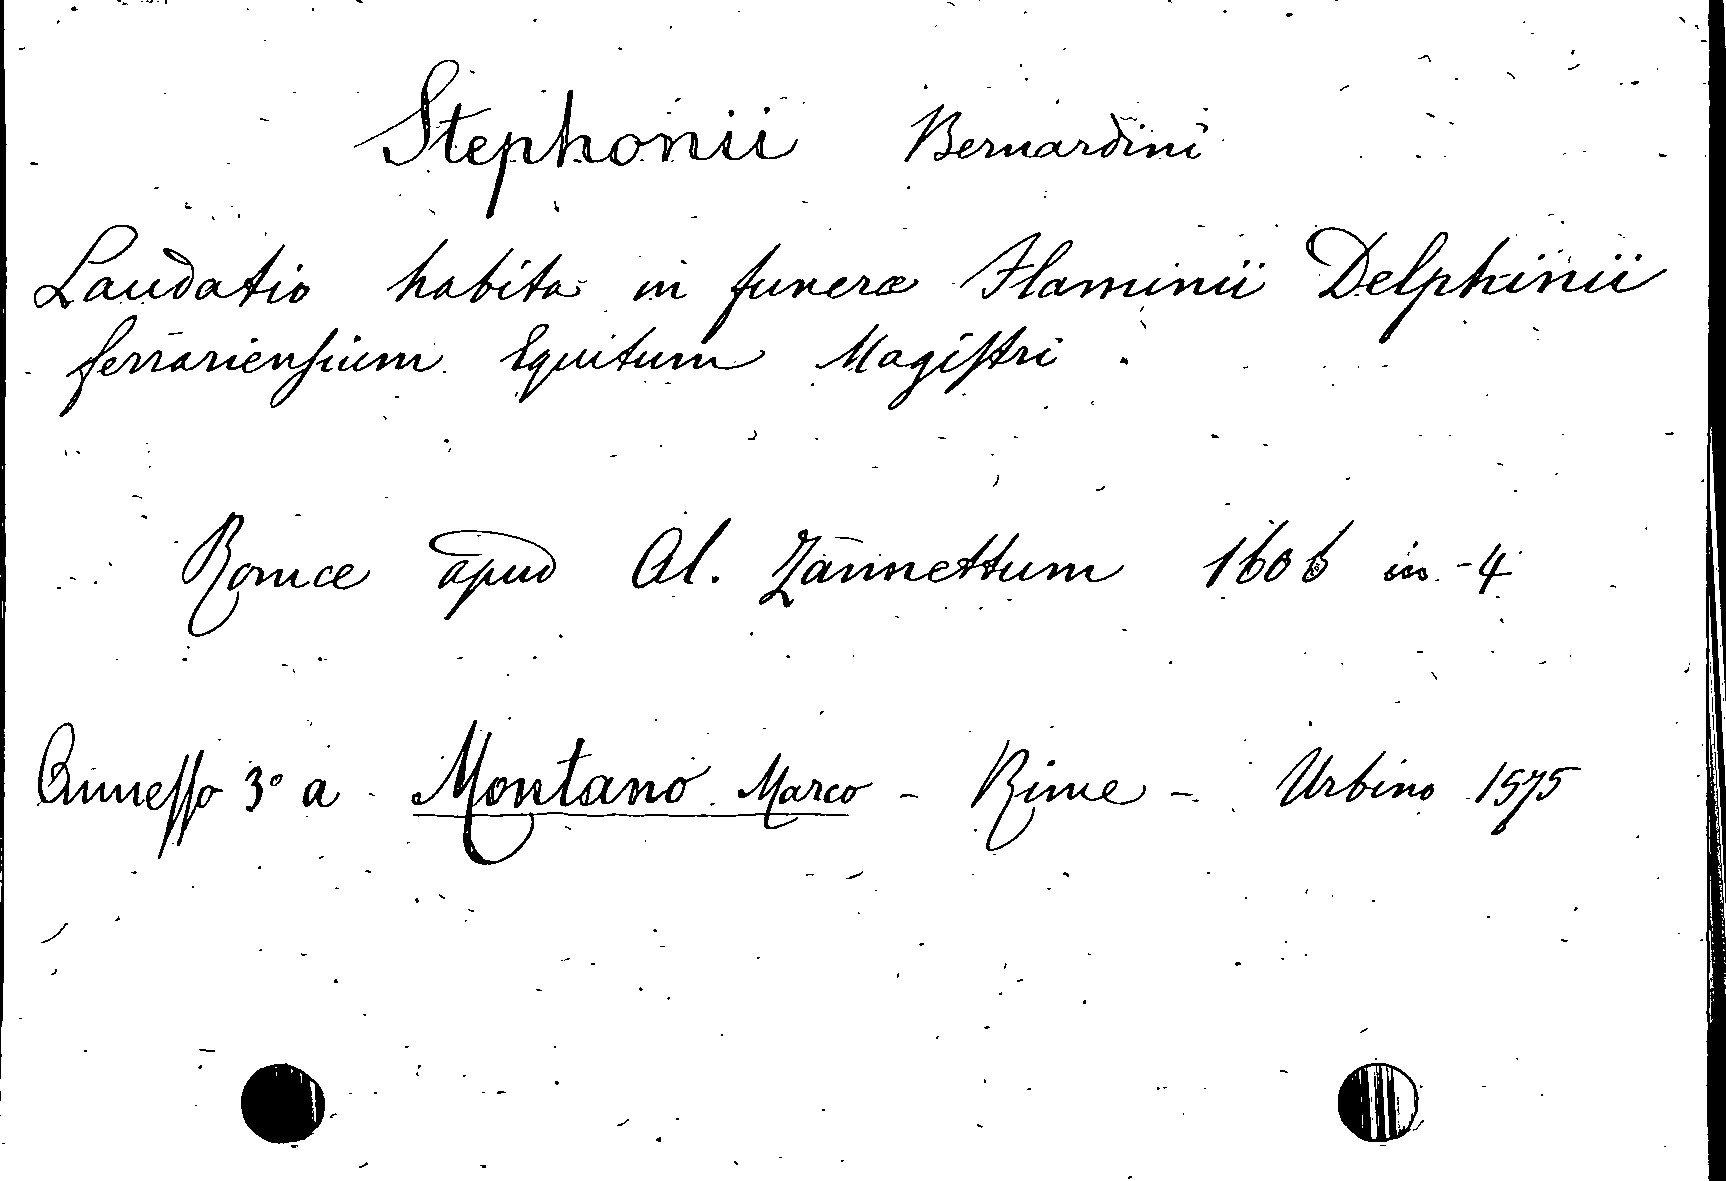 Stephonii Bernardini
Laudatio habita in funere Flaminii Delphinii
ferrariensium Equitum Magistri
Romæ apud Al. Zannettum 1606 in-4
Annesso 3° a Montano Marco - Rime - Urbino 1575